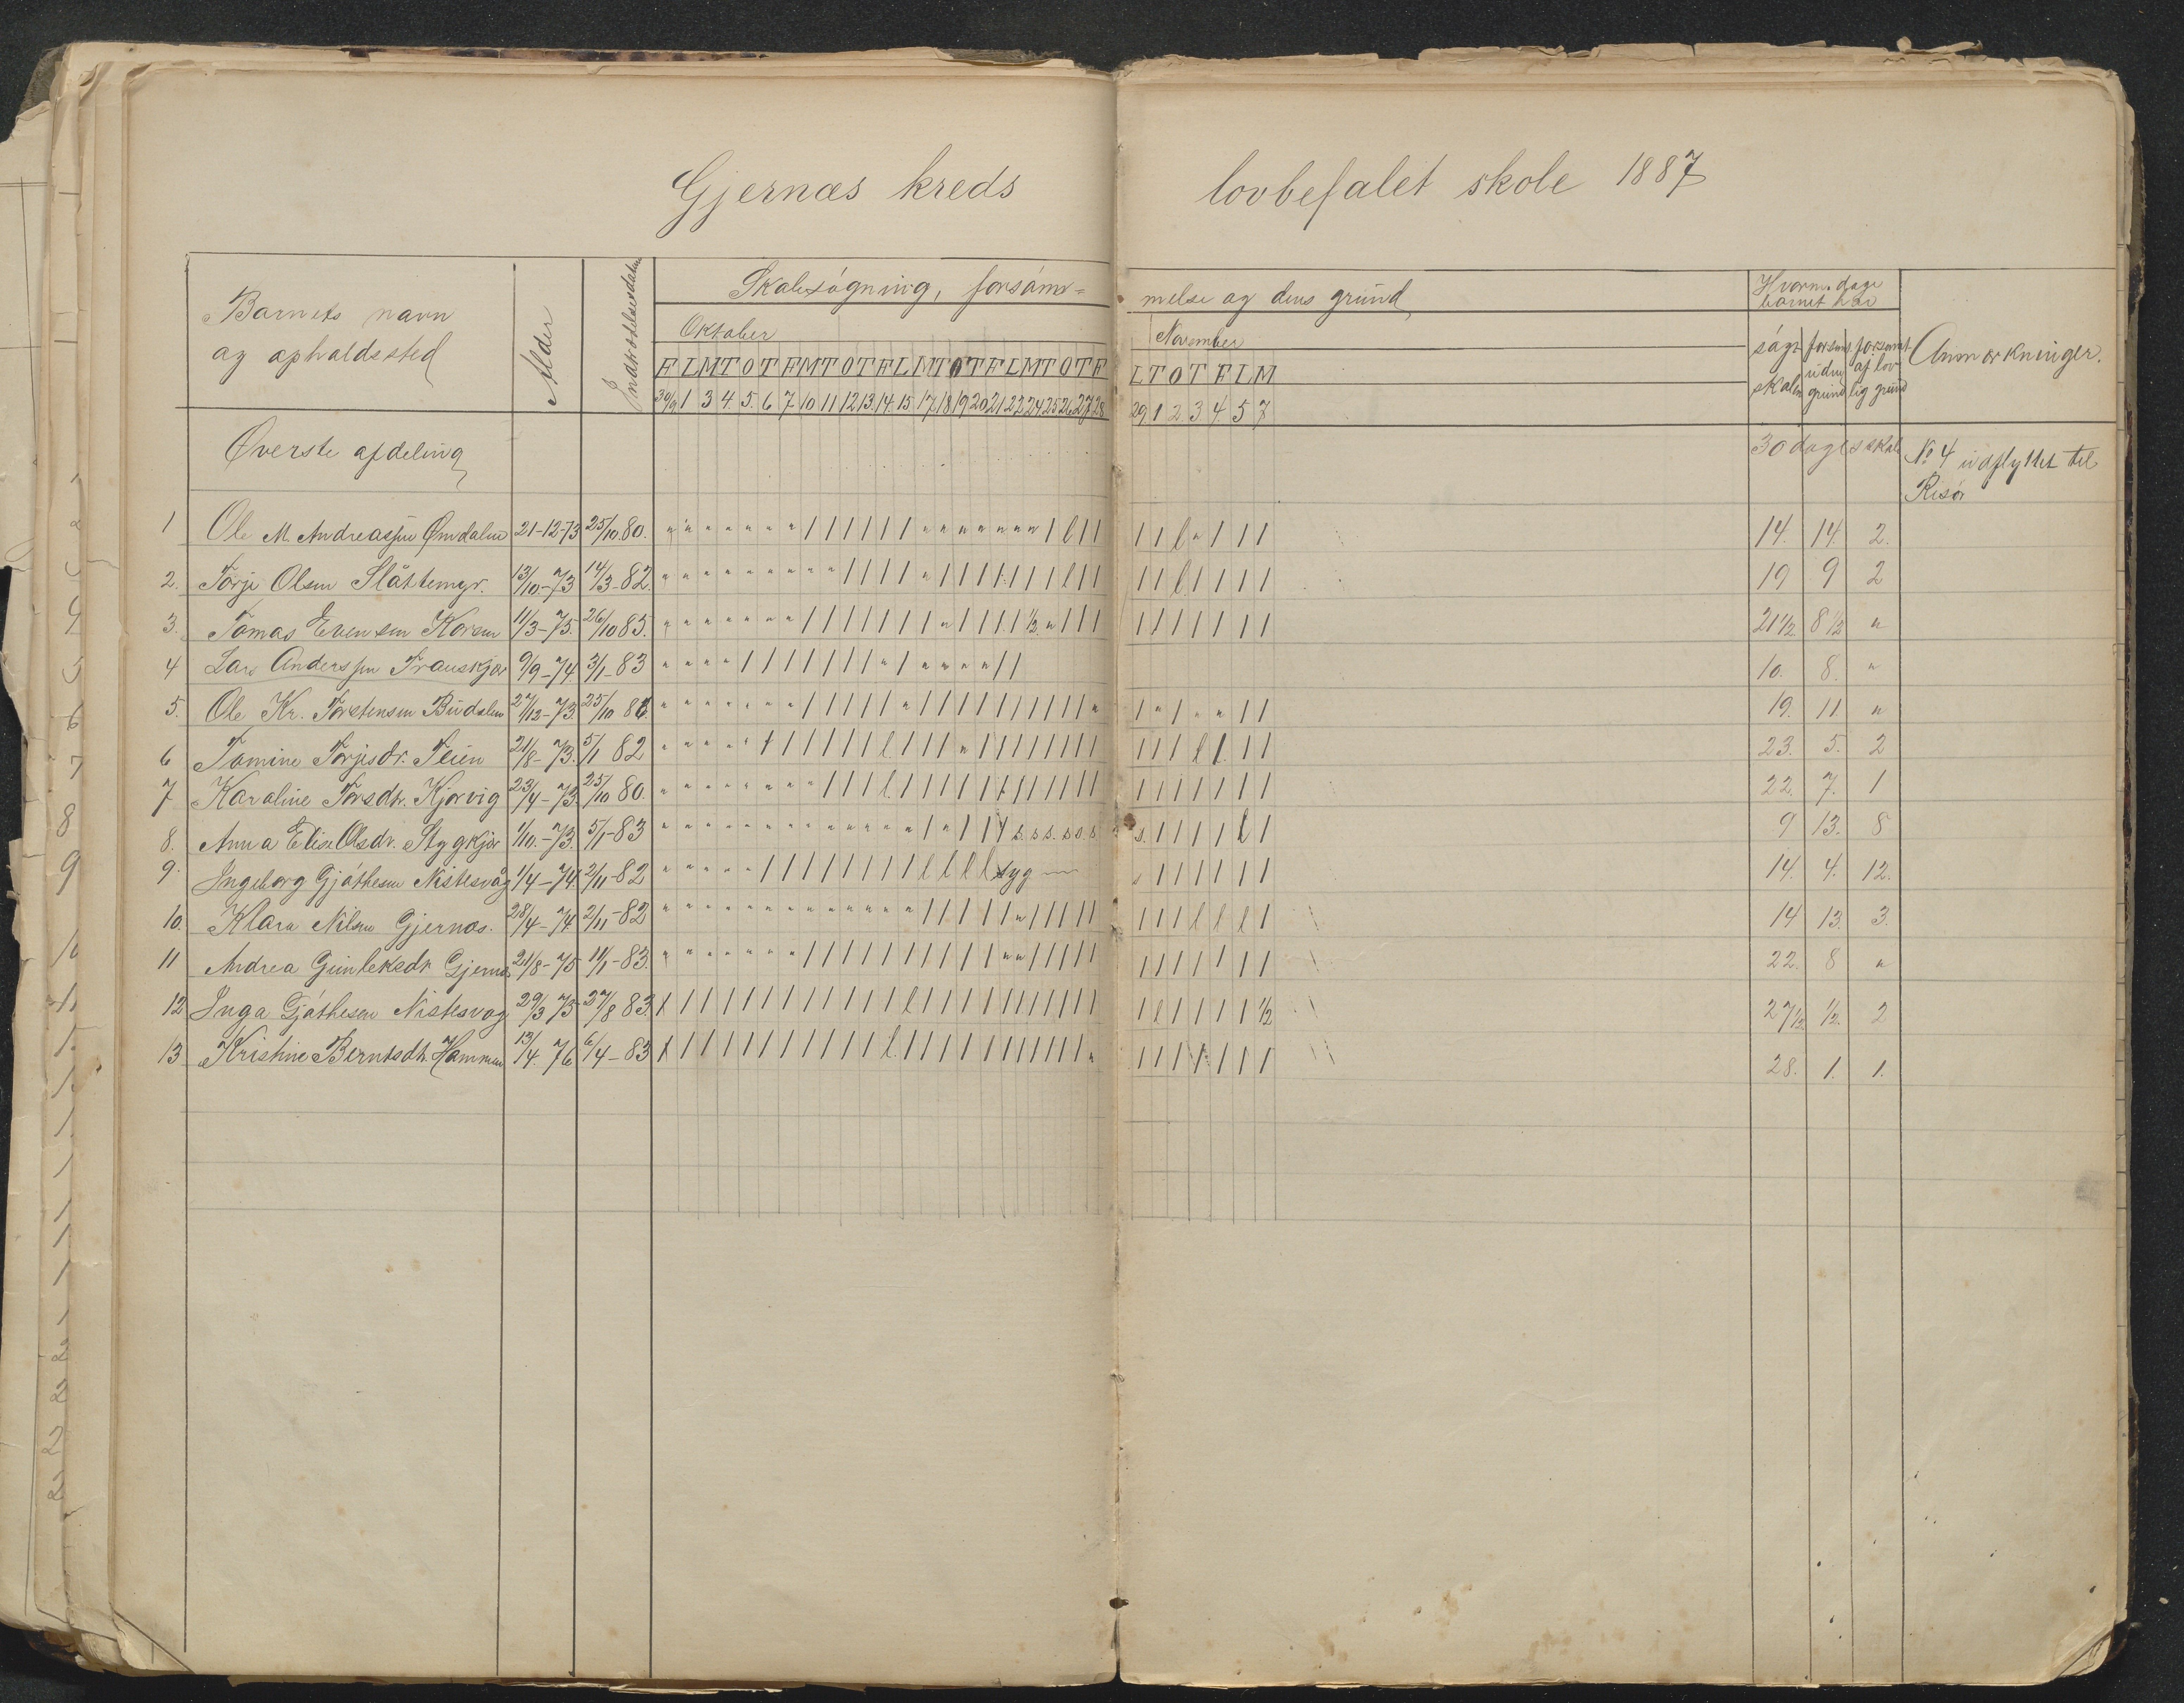 Gjernæs kreds lovbefalet skole 1887
Barnets navn og opholdssted
Alder
Indtrædelsesdatum
Skolesøgning, forsøm= melse og dens grund
Hvorm. dage barnet har
søgt skolen
forsømt uden grund
forsømt af lovlig grund
Anmærkninger.
Oktober
November
F L M T O T F M T O T F L M T O T F L M T O T F
L T O T F L M
30/9 1 3 4. 5. 6 7. 10 11 12 13. 14. 15 17 18 19 20 21 22 24 25 26 27 28
29 1 2 3 4. 5 7
Øverste afdeling
30 dages skole
No 4 udflyttet til
Risør
1 Ole M. Andreassen Ømdalen 21-12-73 25/10 80. 14. 14. 2.
2. Torje Olsen Slåttemyr. 13/10-73 14/3-82 19 9 2
3. Tomas Evensen Korsen 11/3-75. 26/10 83. 21 1/2 8 1/2 "
4 Lars Anderssen 9/9-74 3/1-83 10. 8. "
5. Ole Kr. Torstensen Budalen 27/12-73. 25/10 19. 11. "
6 Tomine Torjesdr. Teien 21/8-73. 5/1 82 23. 5. 2
7 Karoline Torsdtr. Kjørvig 23/4-73. 25/10 80. 22. 7. 1
8. Anna Elise Olsdr. Styggkjær 1/10.-73. 5/1-83 s. s. s. s s s s. 9 13. 8
9. Ingeborg Gjøthesen Nistesvåg 1/4-74. 2/11-82 syg s 14. 4. 12.
10. Klara Nilsen Gjernæs. 28/4-74 2/11-82 14 13 3.
11 Andrea Gunleksdr Gjernæs 21/8-75 11/1-83. 22. 8 "
12 Inga Gjøthesen Nistesvåg 29/3 75 27/8 83. 1/2 27 1/2 1/2. 2
13 Kristine Berntsdtr. Hammen 13/4. 76 6/4-83 28. 1. 1.